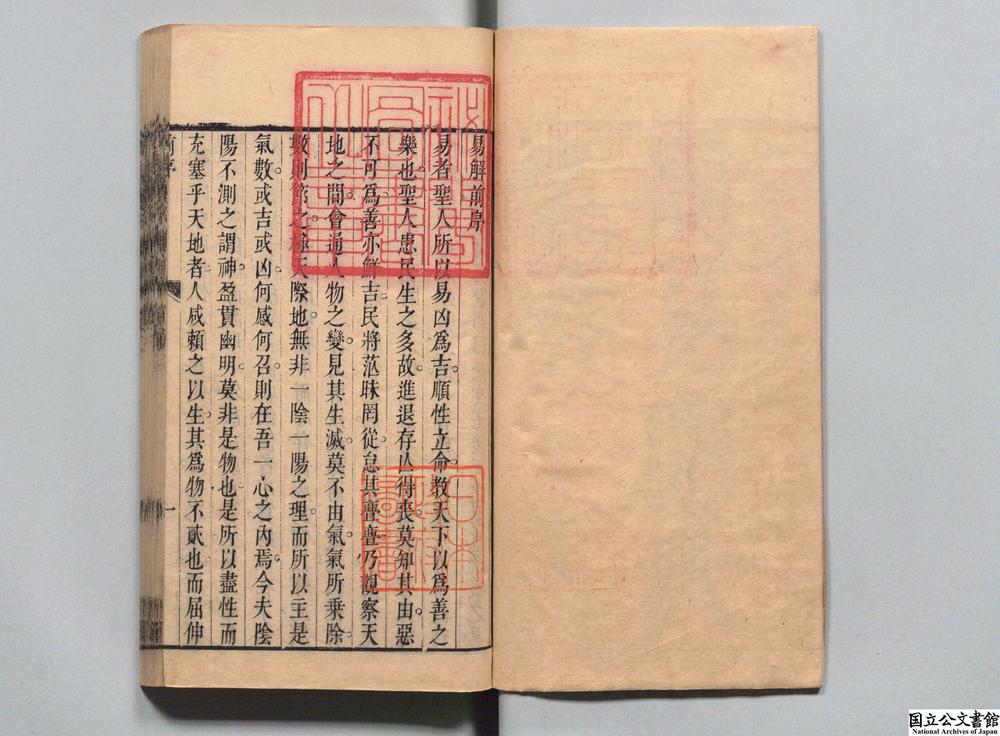 易解前序
易者聖人所以易凶爲吉順性立命教天下以爲善之
樂也聖人患民生之多故進退存亾得喪莫知其由惡
不可爲善亦鮮吉民將茫昧罔從怠其亹亹乃觀察天
地之間會通人物之變見其生滅莫不由氣氣所乘除
數則節之極天際地無非一陰一陽之理而所以主是
氣數或吉或凶何感何召則在吾一心之內焉今夫陰
陽不測之謂神盈貫幽明莫非是物也是所以盡性而
充塞乎天地者人咸賴之以生其爲物不貳也而屈伸
前序
一
日本
政府
圖書
国立公文書館
National Archives of Japan